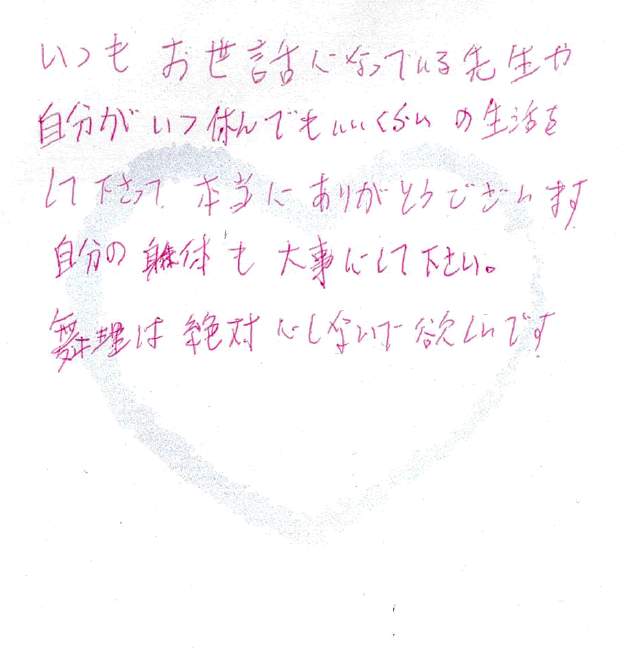 いつも お世話になっている先生や
自分がいつ休んでもいいくらいの生活を
して下さって 本当にありがとうございます
自分の身体も大事にして下さい。
無理は絶対にしないで欲しいです